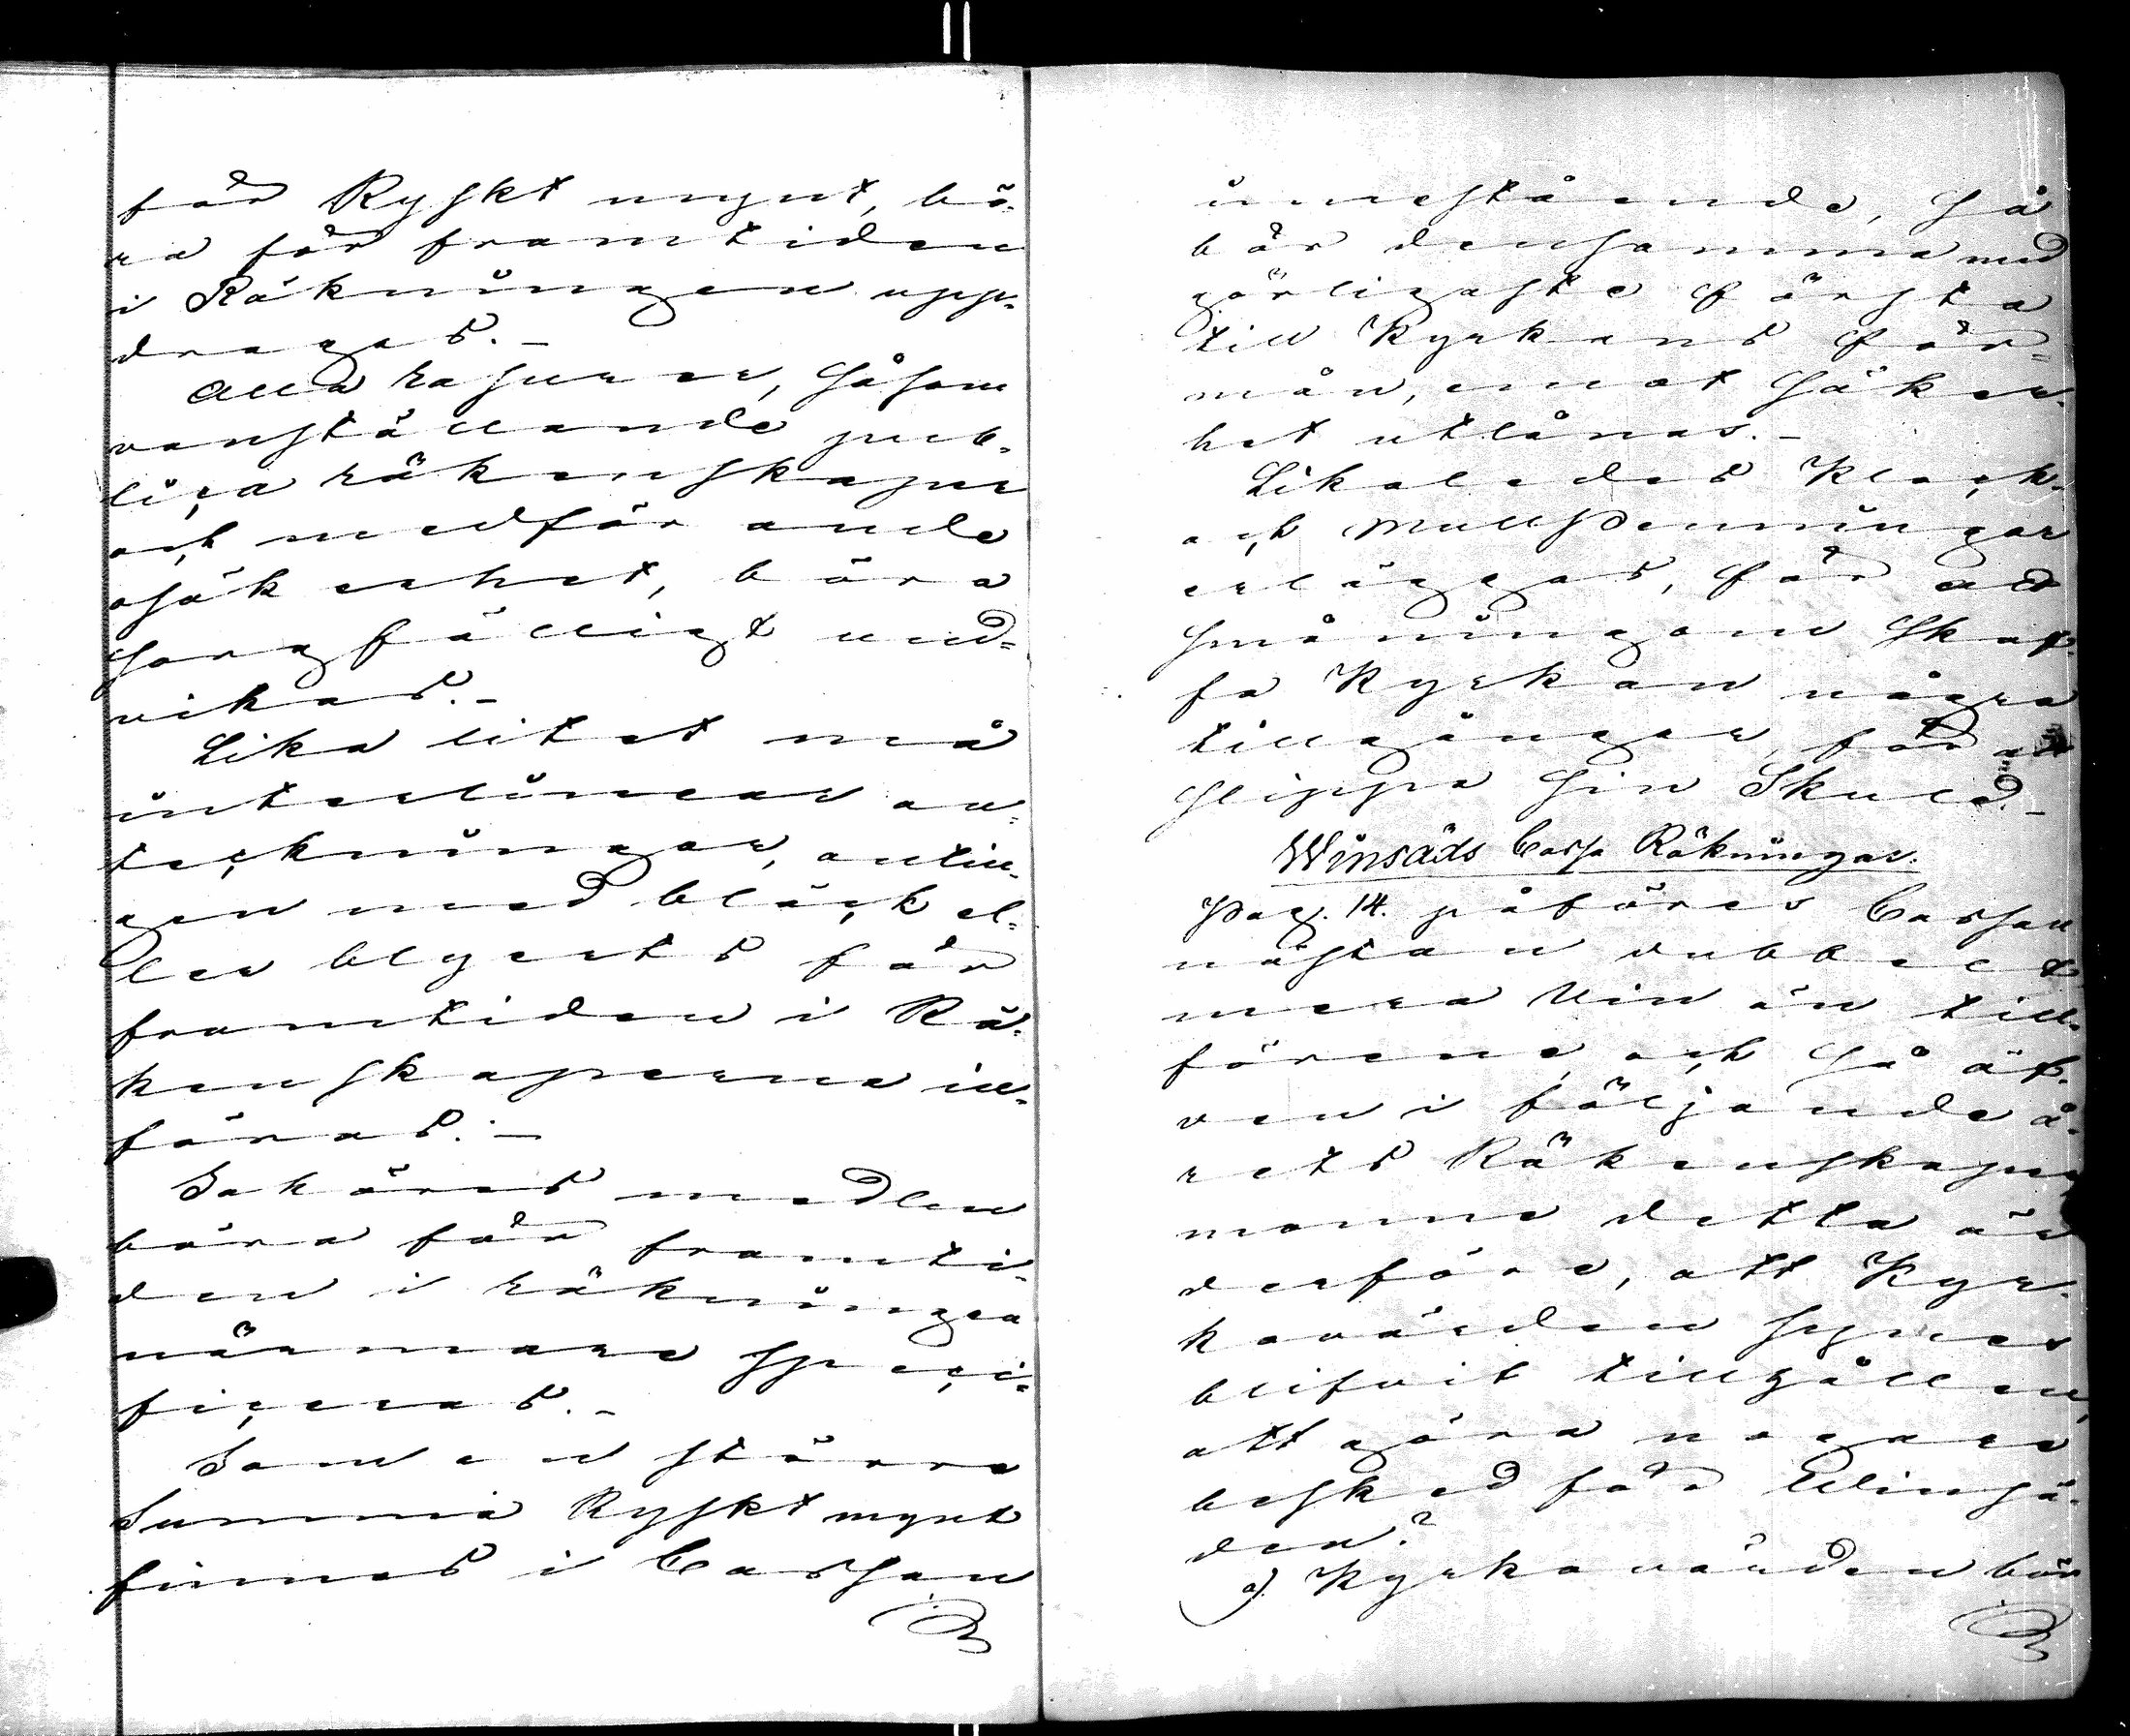 för Ryskt mynt, bö-
ra för framtiden
i Räkningen upp-
dragas.-
Alla rasurer, såsom
vanställande pub-
lica räkenskaper
och medförande
osäkerhet, böra
sorgfälligt und-
vikas.-
Lika litet må
interlinear an-
teckningar, antin-
gen med bläck el-
ler blyerts för
framtiden i Rä-
kenskaperna in-
föras.-
Saköres medlen
böra för framti-
den i räkningen
närmare speci-
ficeras.-
Som en större
Summa Ryskt mynt
finnes i Cassan
innestående, så
bör densamma med
görligaste första
till Kyrkans för-
mån, emot säker-
het utlånas.-
Likaledes Klock-
och Mullpenningar
erläggas, för att
småningom skaf-
fa Kyrkan några
tillgångar, för att
slippa sin Skuld.-
Winsäds Cassa Räkningar.
Pag. 14. påföres Cassan
nästan dubbelt
mera Vin än till-
förene, och så äf-
ven i följande å-
rets Räkenskaper,
monne detta är
derföre, att Kyr-
kovärden synes
blifvit tillhållen,
att göra nogare
besked för Winsä-
den?
a) Kyrkovärden bör